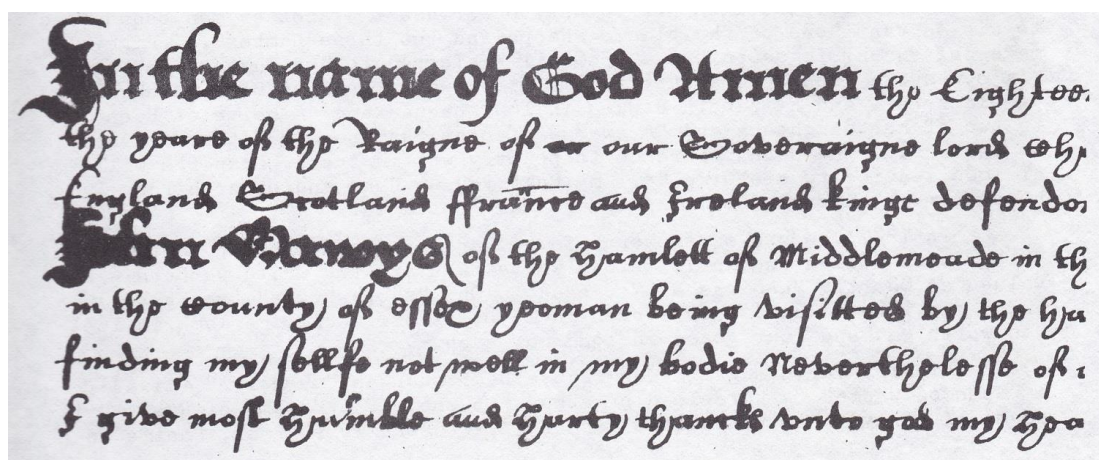 In the name of God Amen the Eightee
the yeare of the Raigne of our Soveraigne lord
England Scotland ffrance and Ireland kinge defendo
John of the Hamlett of Middlemeade in th
in the county of essex yeoman being visitted by the ha
finding my sellfe not well in my bodie Neverthelesse of
I give most Humble and Harty thancks vnto god my Hea